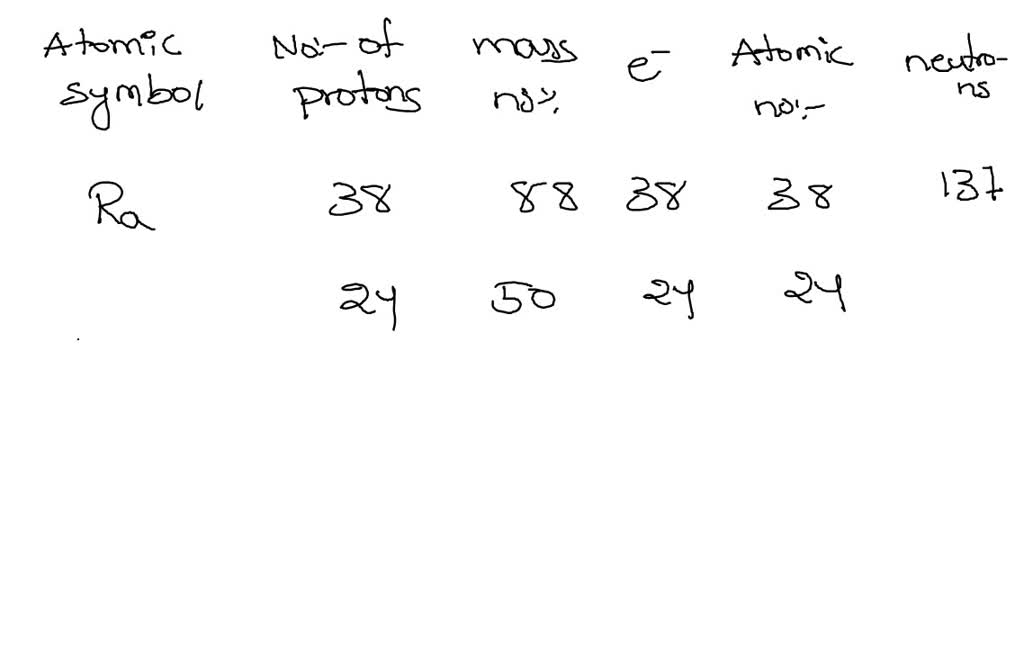 Atomic symbol No:- of protons mass no:- e⁻ Atomic no:- neutro-ns
Ra 38 88 38 38 137
24 50 24 24